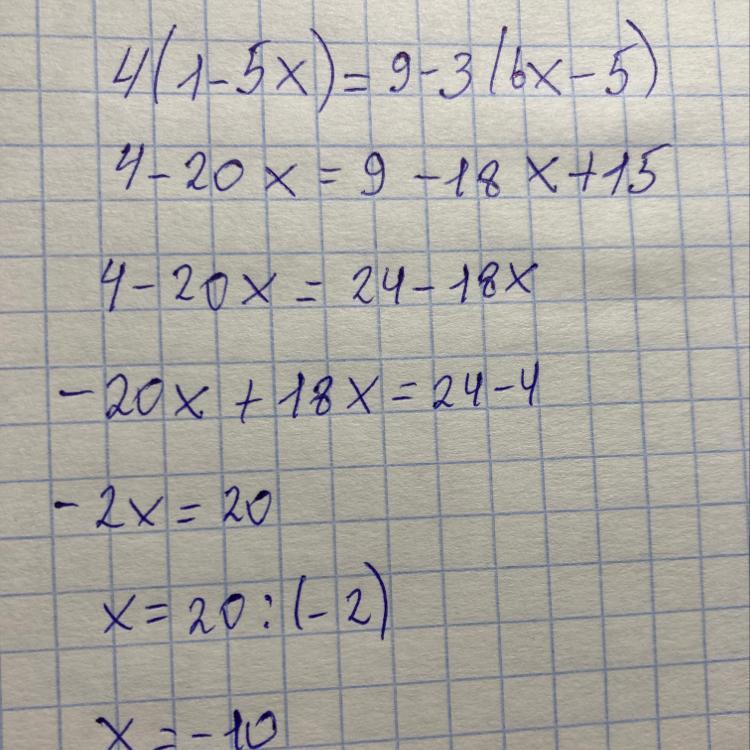 4(1-5x)=9-3(6x-5)
4-20x=9-18x+15
4-20x=24-18x
-20x+18x=24-4
-2x=20
x=20:(-2)
x=-10